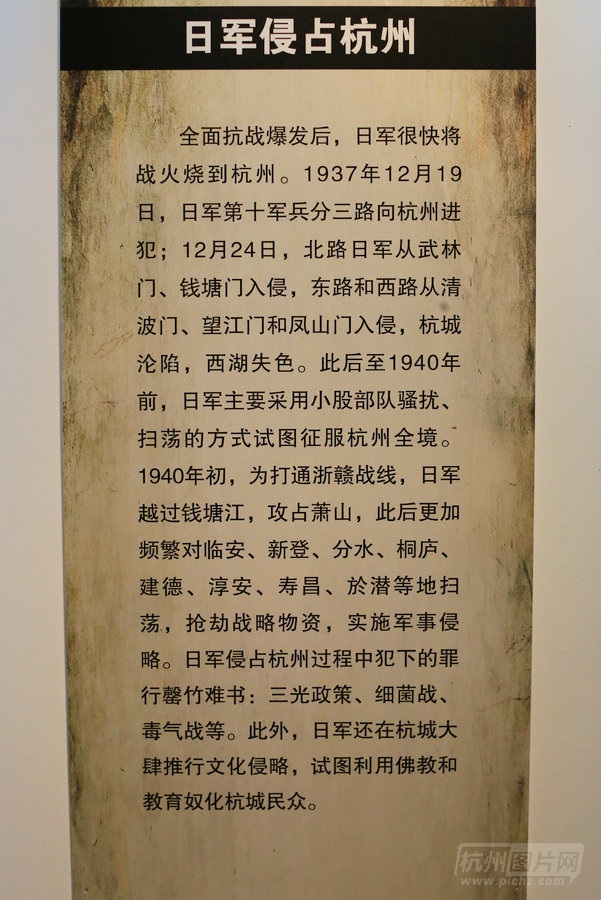 日军侵占杭州
全面抗战爆发后，日军很快将
战火烧到杭州。1937年12月19
日，日军第十军兵分三路向杭州进
犯；12月24日，北路日军从武林
门、钱塘门入侵，东路和西路从清
波门、望江门和凤山门入侵，杭城
沦陷，西湖失色。此后至1940年
前，日军主要采用小股部队骚扰、
扫荡的方式试图征服杭州全境。
1940年初，为打通浙赣战线，日军
越过钱塘江，攻占萧山，此后更加
频繁对临安、新登、分水、桐庐、
建德、淳安、寿昌、於潜等地扫
荡，抢劫战略物资，实施军事侵
略。日军侵占杭州过程中犯下的罪
行罄竹难书：三光政策、细菌战、
毒气战等。此外，日军还在杭城大
肆推行文化侵略，试图利用佛教和
教育奴化杭城民众。
杭州图片网
www.pichz.com